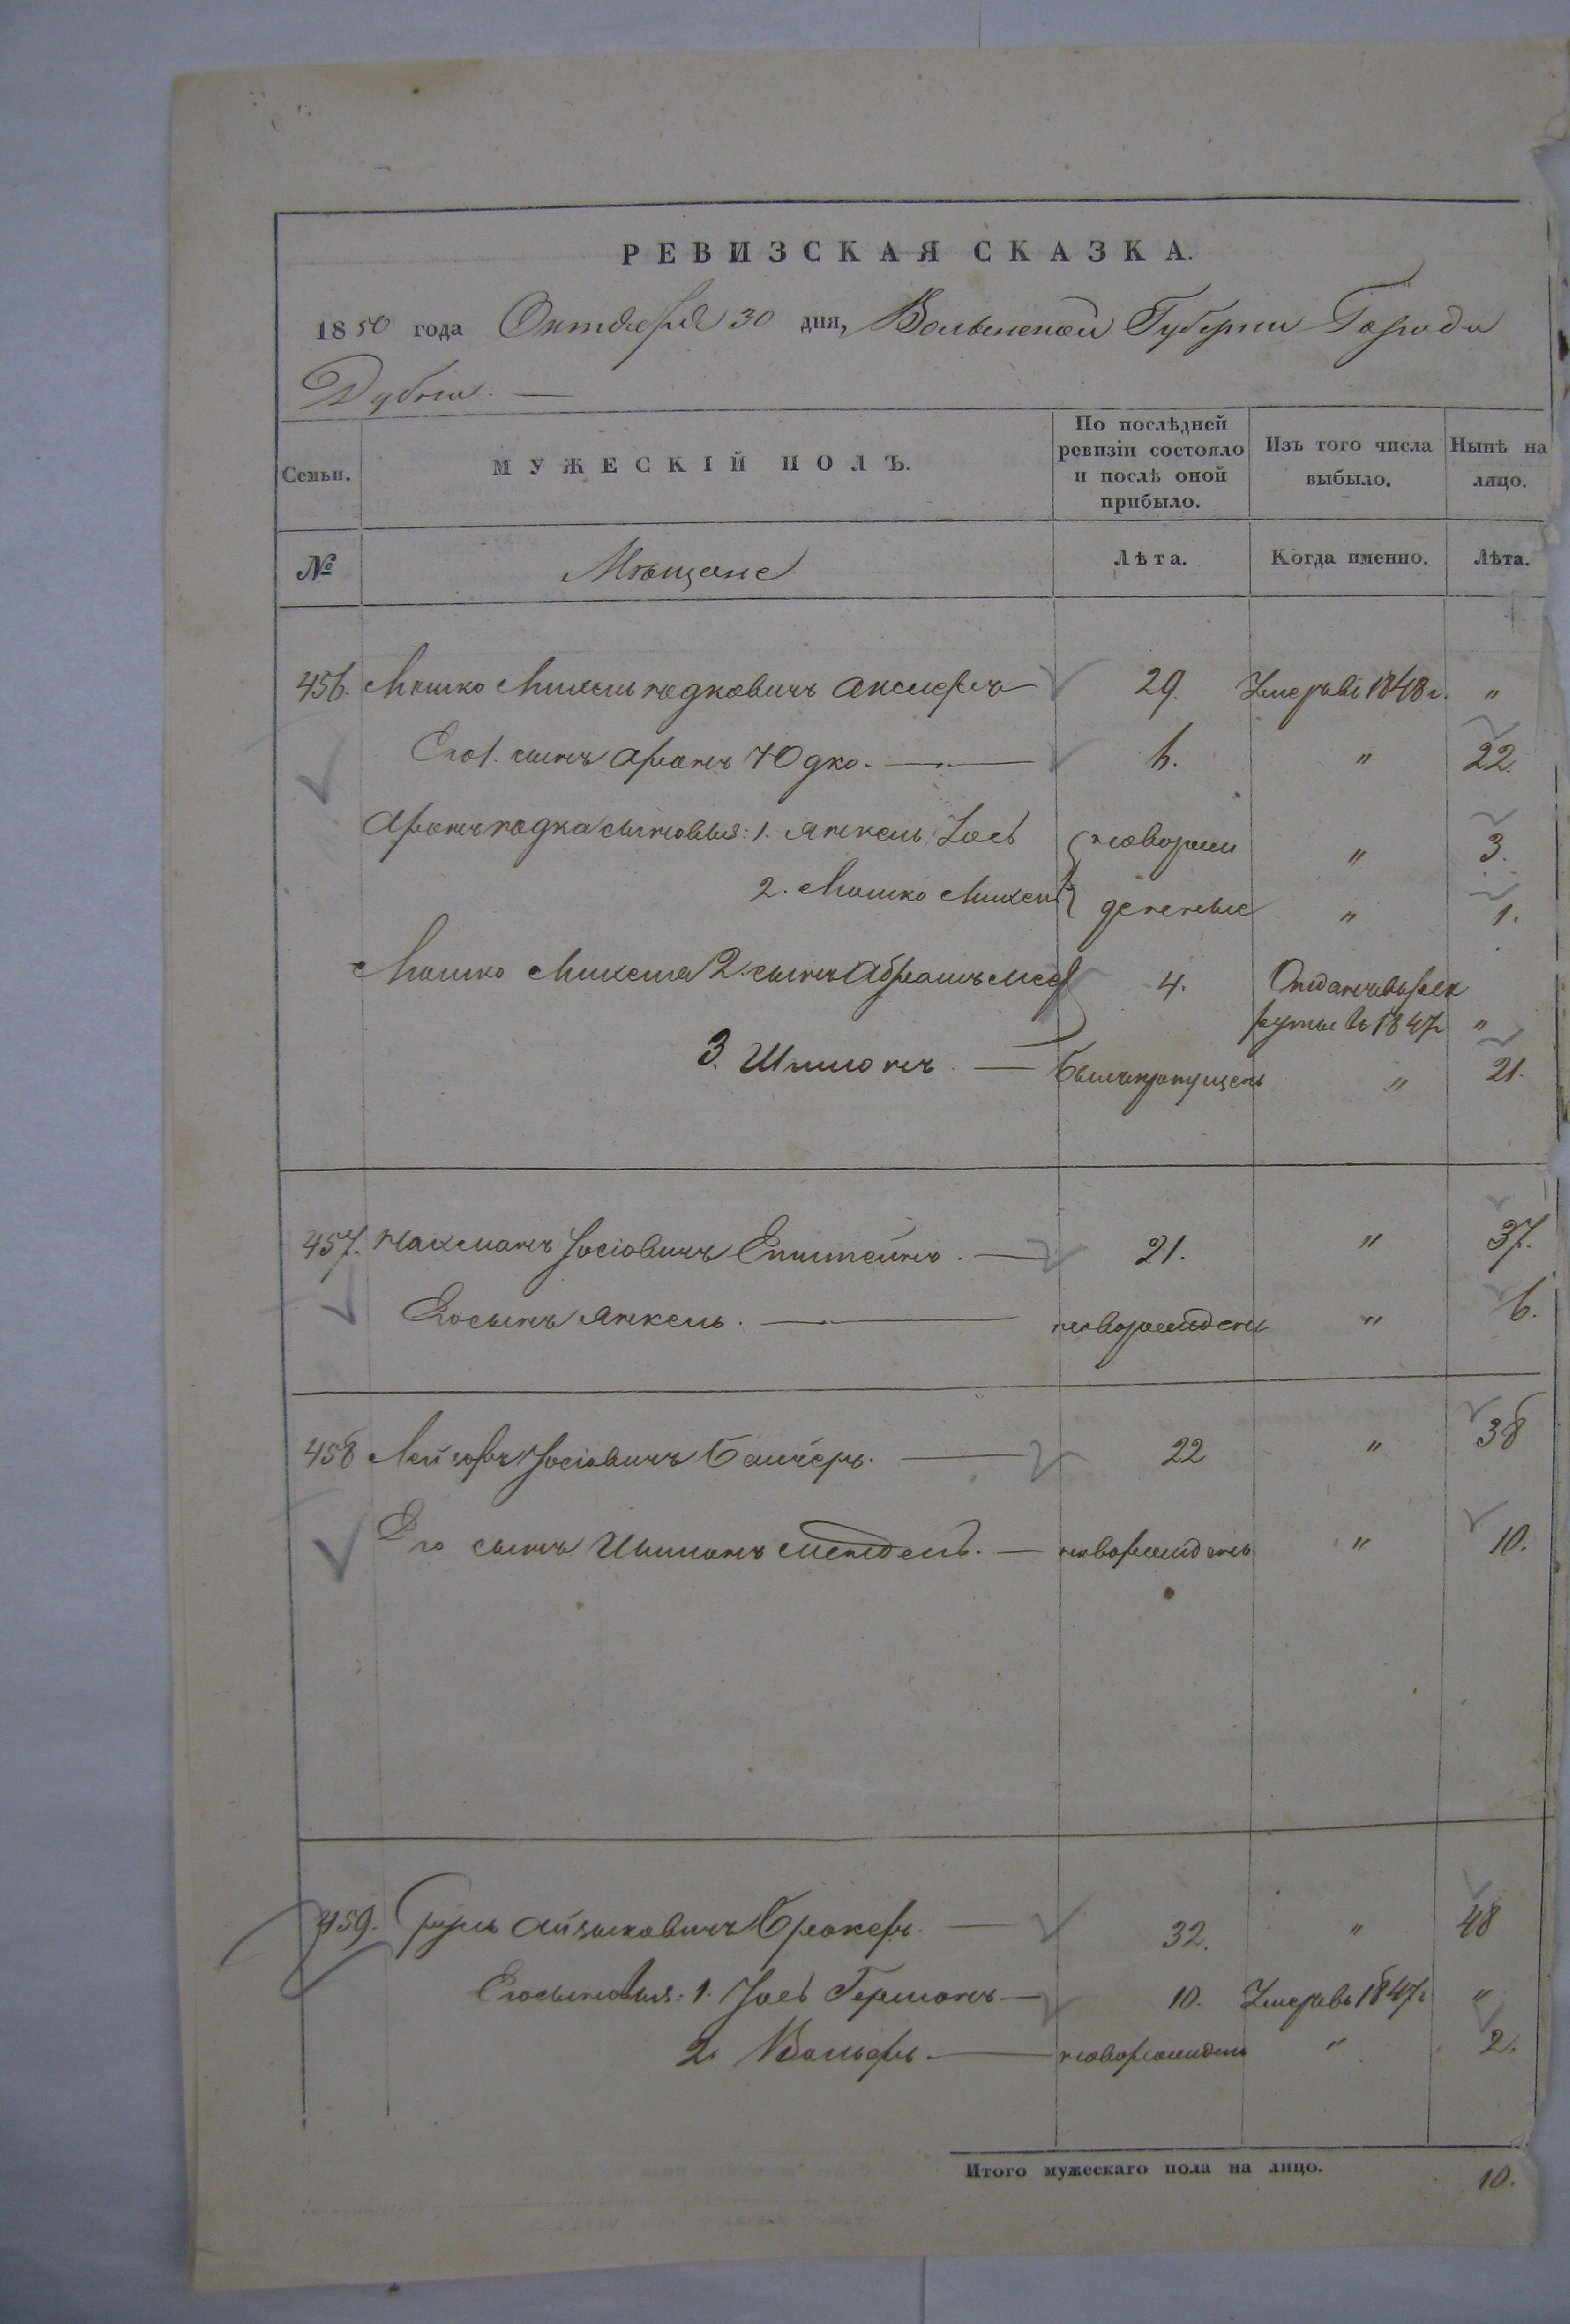 РЕВИЗСКАЯ СКАЗКА.
1850 года Октября 30 дня, Волынской Губернии Города
Дубна. —
Семьи. МУЖЕСКІЙ ПОЛЪ. По послѣдней ревизіи состояло и послѣ оной прибыло. Изъ того числа выбыло. Нынѣ на лицо.
№ Мѣщане Лѣта. Когда именно. Лѣта.
456. Мошко Михель Юдковичъ 29. Умеръ въ 1848 г. "
Его 1. сынъ Аронъ Юдко. — 6. " 22.
Аронъ Юдка сыновья: 1. Янкель Іось новорож " 3.
2. Мошко Михель денные " 1.
Мошко Михеля 2. сынъ Абрамъ 4. Отданъ въ рек
руты въ 1847 "
3. Шимонъ. — былъ пропущенъ " 21.
457. Нахманъ Іосіовичъ Епштейнъ. — 21. " 37.
Его сынъ Янкель. — новорожденъ " 6.
458 Лейзоръ Іосіовичъ — 22 " 38
Его сынъ Шимонъ Мендель. — новорожденъ " 10.
459. Айзыковичъ — 32. " 48
Его сыновья: 1. Іось Германъ — 10. Умеръ въ 1847 г "
2. Вольфъ. — новорожденъ " 2.
Итого мужескаго пола на лицо. 10.